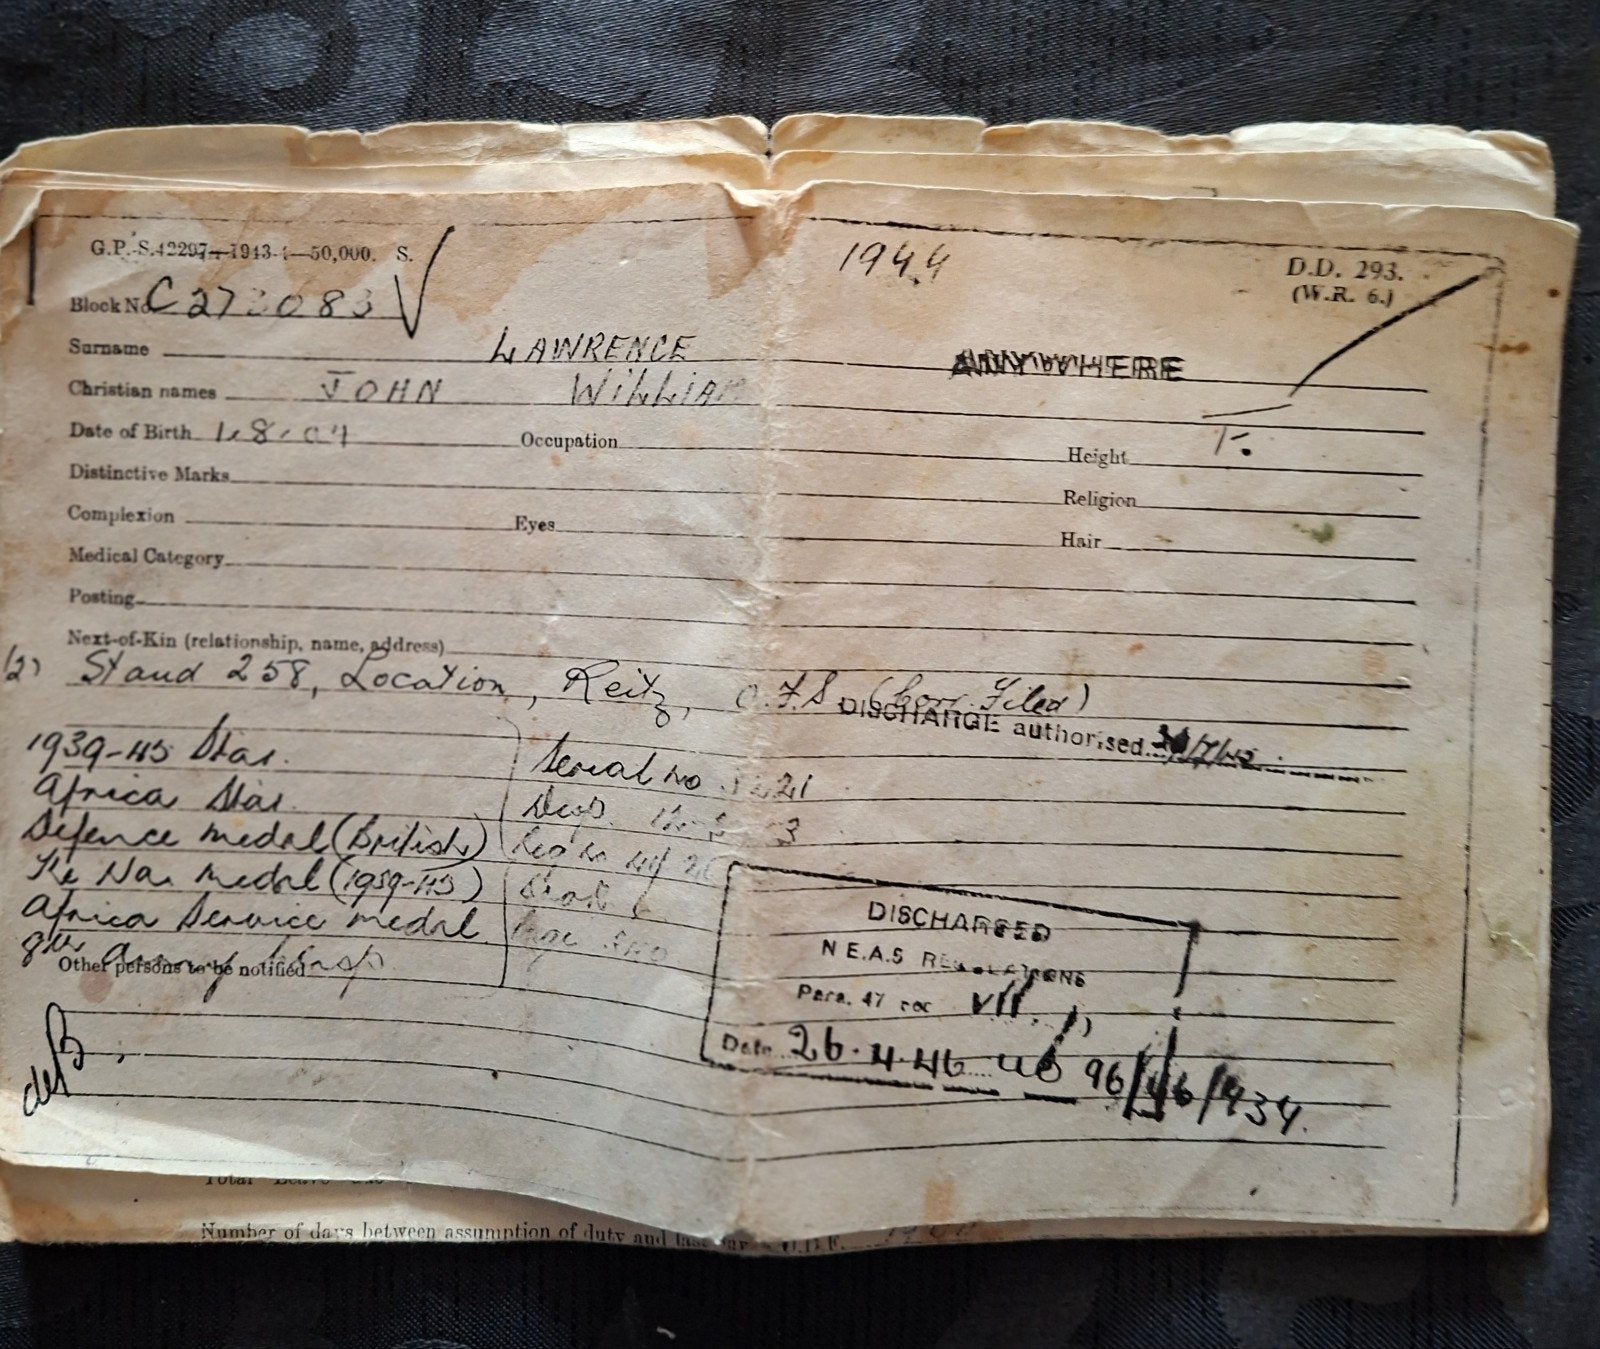 G.P.-S.42297—1943-4—50,000. S.
1944
D.D. 293.
(W.R. 6.)
Block No. C273083
Surname LAWRENCE
ANYWHERE
Christian names JOHN WILLIAM
Date of Birth 1.8.07 Occupation Height
Distinctive Marks Religion
Complexion Eyes Hair
Medical Category
Posting
Next-of-Kin (relationship, name, address)
(2) Stand 258, Location, Reitz, O.F.S. (Corr. Filed)
DISCHARGE authorised
1939-45 Star. Serial no
Africa Star.
Defence medal (British)
The War medal (1939-45)
Africa Service medal
8th Army Clasp
Other persons to be notified
DISCHARGED
N.E.A.S REGULATIONS
Para. 47 VII
Date 26.4.46 96/46/434.
deB.
Total Leave
Number of days between assumption of duty and last day U.D.F.